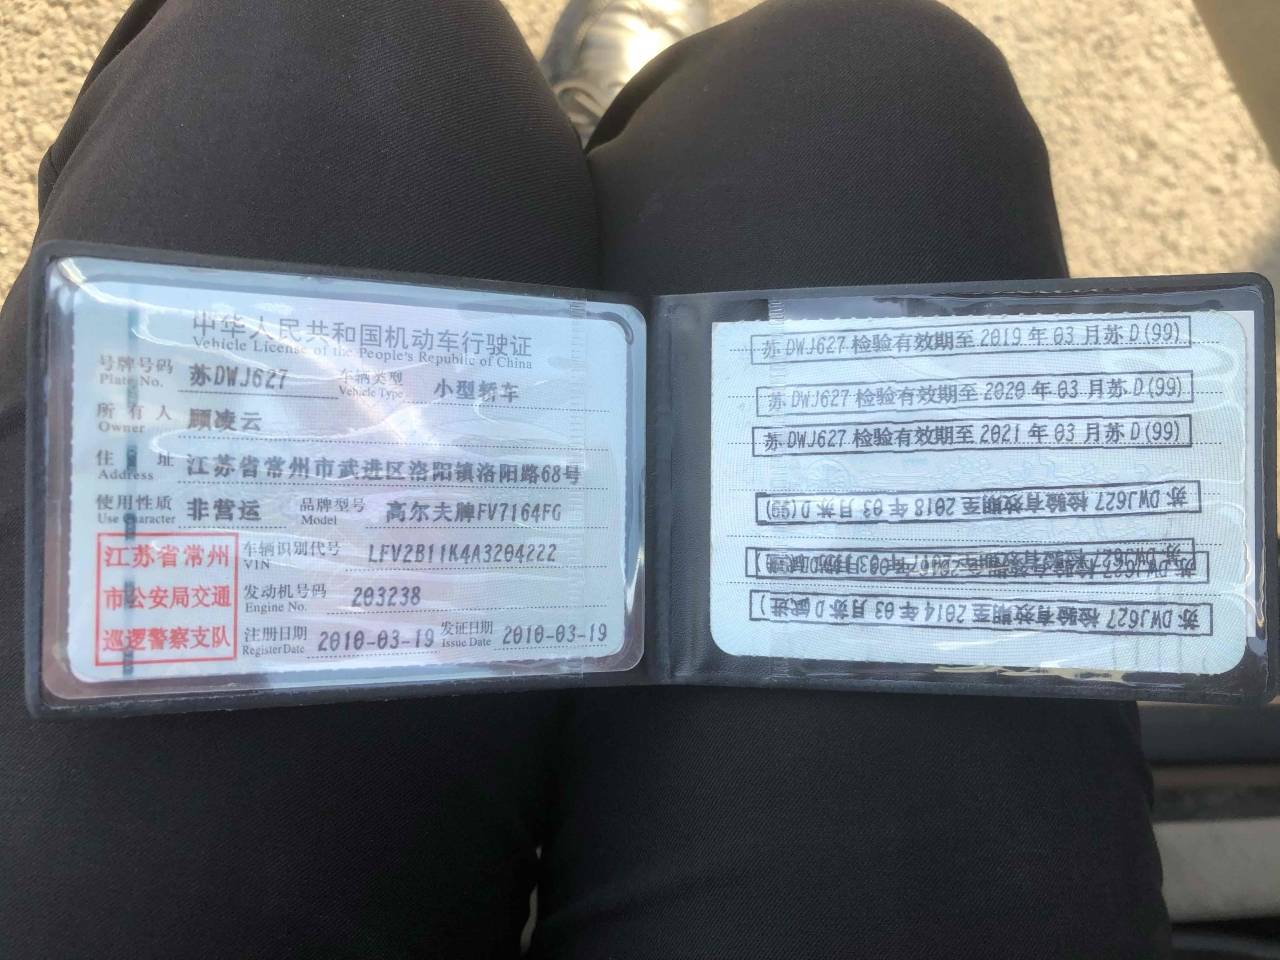 中华人民共和国机动车行驶证
Vehicle License of the People's Republic of China
号牌号码 苏DWJ627 车辆类型 小型轿车
Plate No. Vehicle Type
所有人 顾凌云
Owner
住址 江苏省常州市武进区洛阳镇洛阳路68号
Address
使用性质 非营运 品牌型号 高尔夫牌FV7164FG
Use Character Model
车辆识别代号 LFV2B11K4A3204222
VIN
发动机号码 203238
Engine No.
注册日期 2010-03-19 发证日期 2010-03-19
Register Date Issue Date
江苏省常州
市公安局交通
巡逻警察支队
苏DWJ627 检验有效期至 2019 年 03 月苏D(99)
苏DWJ627 检验有效期至 2020 年 03 月苏D(99)
苏DWJ627 检验有效期至 2021 年 03 月苏D(99)
苏DWJ627 检验有效期至 2018 年 03 月苏D(99)
苏DWJ627 检验有效期至 2014 年 03 月苏D(武进)